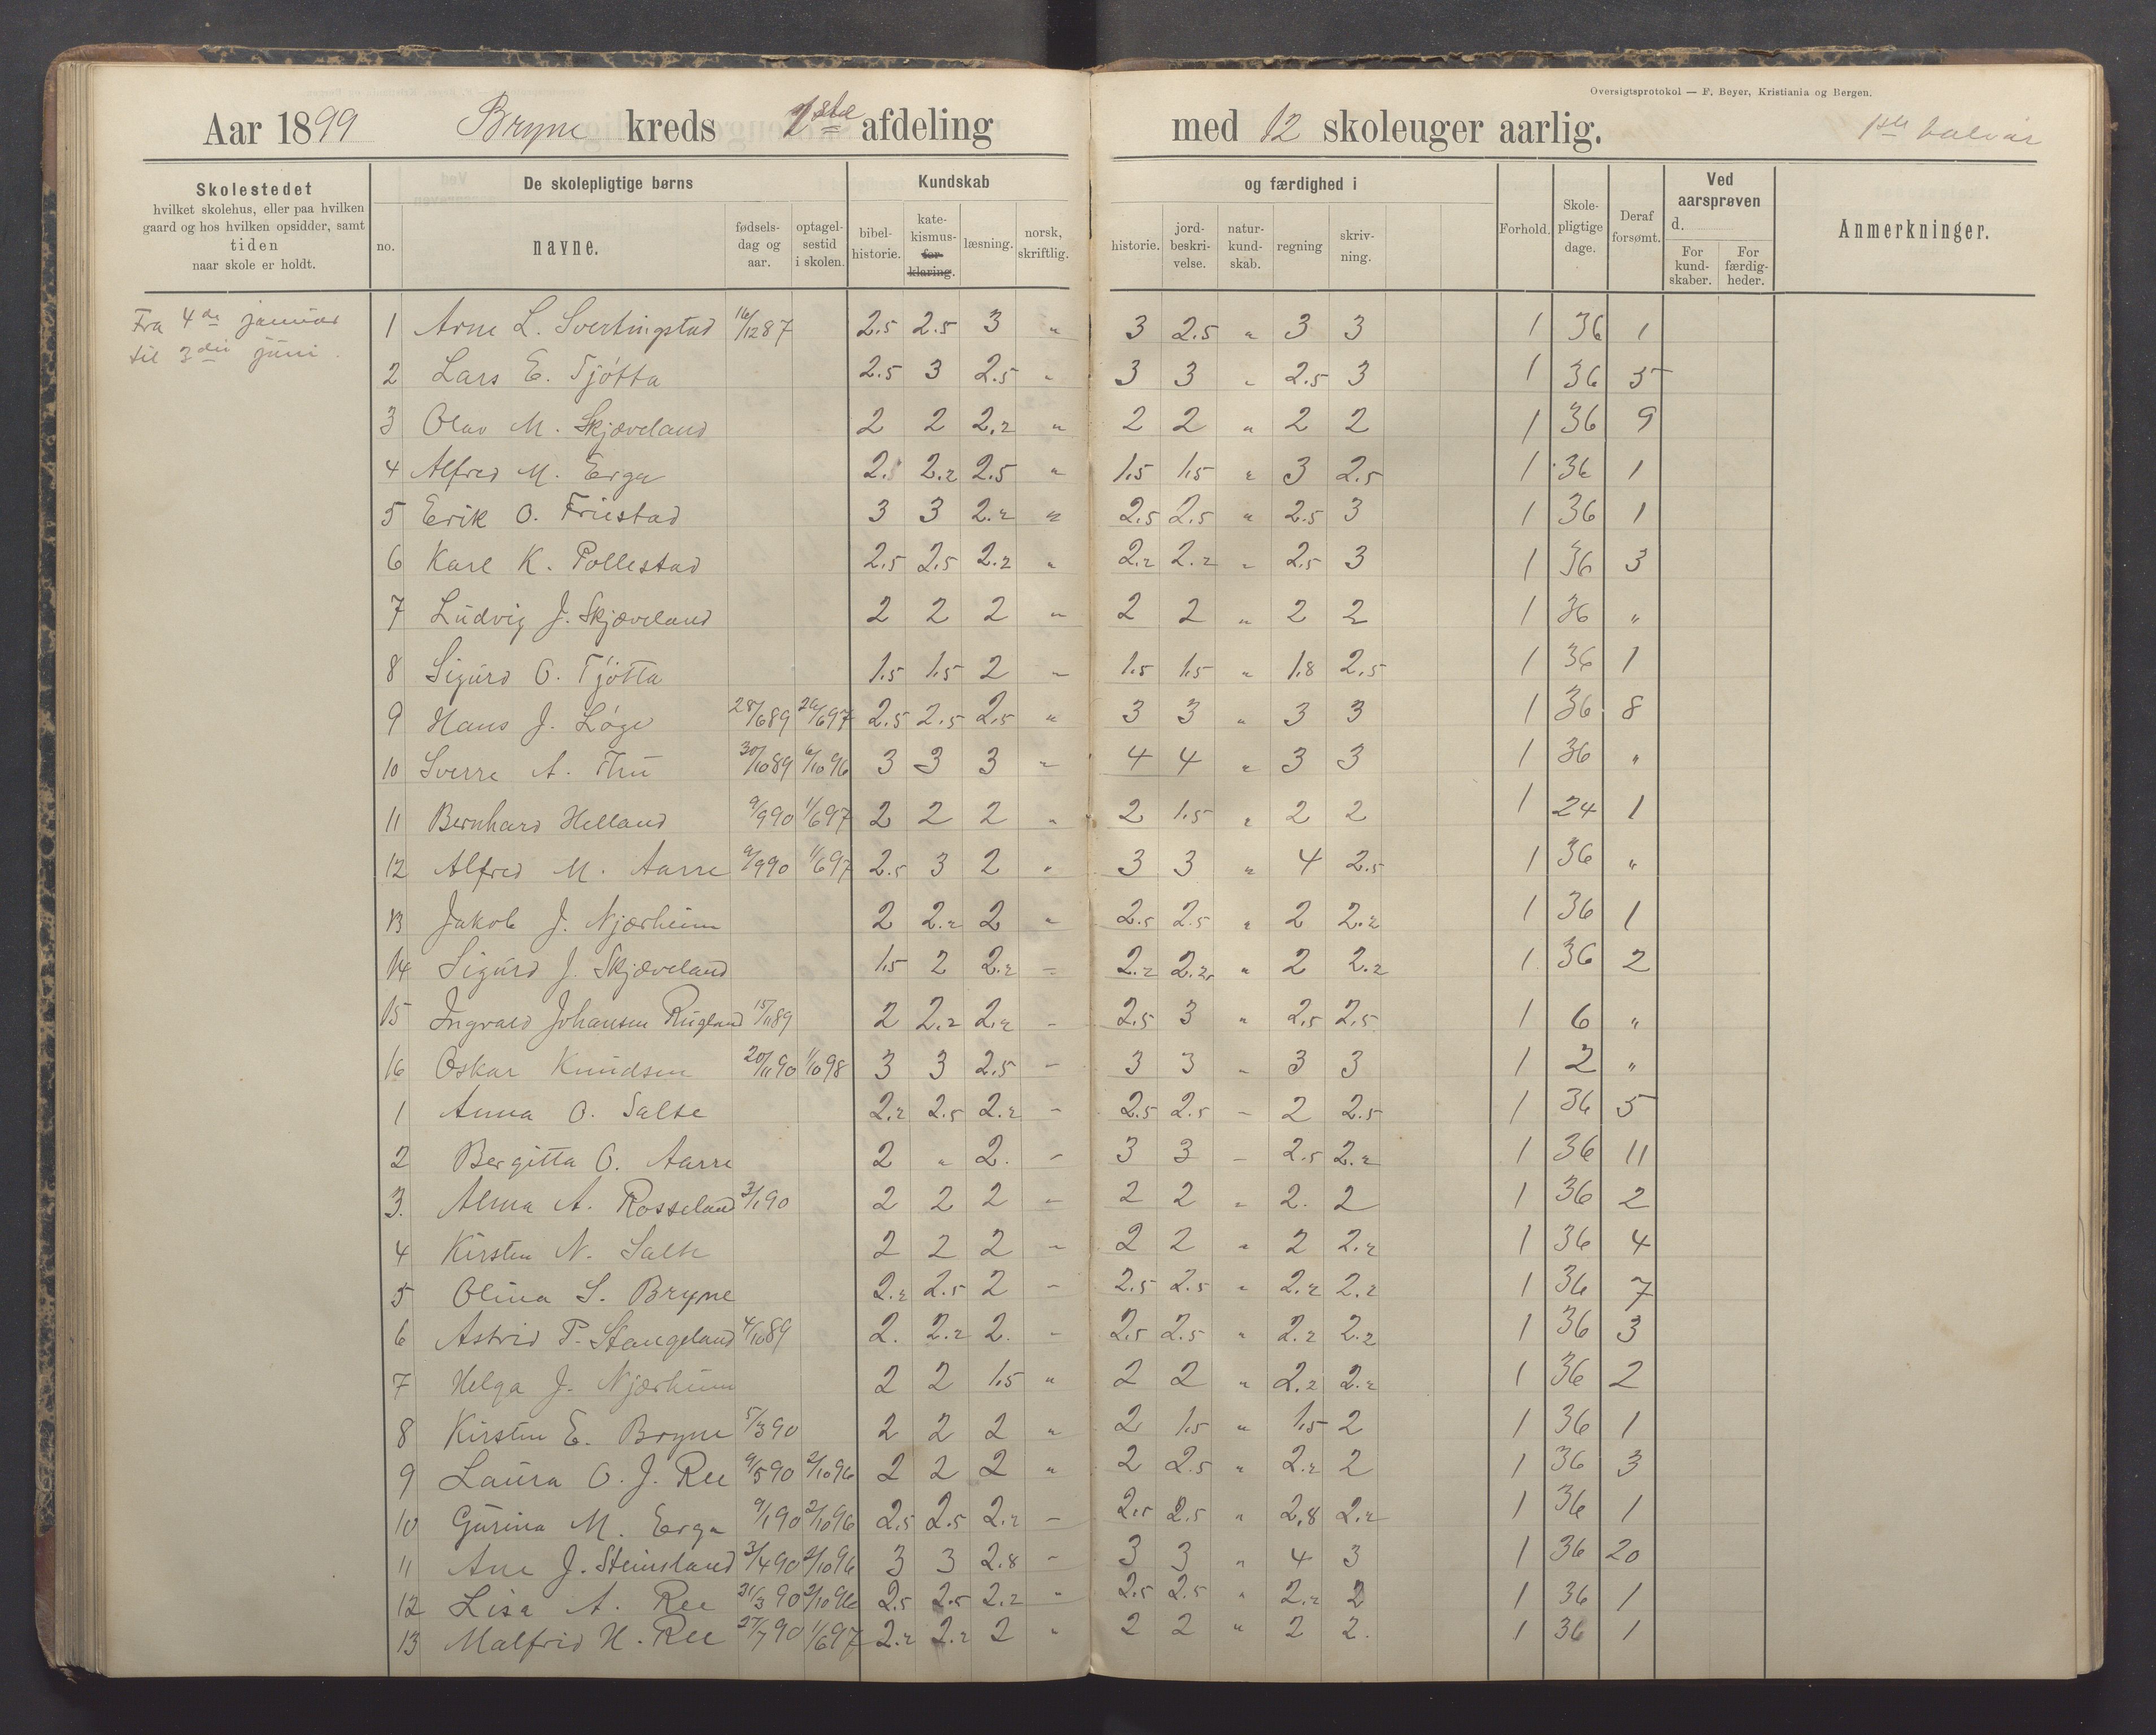 Oversigtsprotokol — F. Beyer, Kristiania og Bergen.
Aar 1899 Bryne kreds 1ste afdeling med 12 skoleuger aarlig. 1ste halvår
Skolestedet hvilket skolehus, eller paa hvilken gaard og hos hvilken opsidder, samt tiden naar skole er holdt.
De skolepligtige børns
no. navne. fødsels-dag og aar. optagel-sestid i skolen.
Kundskab og færdighed i
bibel-historie. kate-kismus-for-klaring. læsning. norsk, skriftlig. historie. jord-beskri-velse. natur-kund-skab. regning skriv-ning.
Forhold. Skole-pligtige dage. Deraf forsømt.
Ved aarsprøven d. For kund-skaber. For færdig-heder.
Anmerkninger.
Fra 4de januar
til 3die juni.
1 Arne L. Svertingstad 16/12 87 2.5 2.5 3 " 3 2.5 " 3 3 1 36 1
2 Lars E. Tjøtta 2.5 3 2.5 " 3 3 " 2.5 3 1 36 5
3 Olav M. Skjæveland 2 2 2.2 " 2 2 " 2 2 1 36 9
4 Alfred M. Erga 2.5 2.2 2.5 " 1.5 1.5 " 3 2.5 1 36 1
5 Erik O. Friestad 3 3 2.2 " 2.5 2.5 " 2.5 3 1 36 1
6 Karl K. Pollestad 2.5 2.5 2.2 " 2.2 2.2 " 2.5 3 1 36 3
7 Ludvig J. Skjæveland 2 2 2 " 2 2 " 2 2 1 36 "
8 Sigurd O. Tjøtta 1.5 1.5 2 " 1.5 1.5 " 1.8 2.5 1 36 1
9 Hans J. Løge 28/6 89 26/6 97 2.5 2.5 2.5 " 3 3 " 3 3 1 36 8
10 Sverre A. Thu 30/10 89 6/10 96 3 3 3 " 4 4 " 3 3 1 36 "
11 Bernhard Helland 9/9 90 1/6 97 2 2 2 " 2 1.5 " 2 2 1 24 1
12 Alfred M. Aarre 9/9 90 1/6 97 2.5 3 2 " 3 3 " 4 2.5 1 36 "
13 Jakob J. Njærheim 2 2.2 2 " 2.5 2.5 " 2 2.2 1 36 1
14 Sigurd J. Skjæveland 1.5 2 2.2 " 2.2 2.2 " 2 2.2 1 36 2
15 Ingvald Johansen Rugland 15/11 89 2 2.2 2.2 " 2.5 3 " 2.5 2.5 1 6 "
16 Oskar Knudsen 20/11 90 1/10 98 3 3 2.5 " 3 3 " 3 3 1 2 "
1 Anna O. Salte 2.2 2.5 2.2 " 2.5 2.5 " 2 2.5 1 36 5
2 Bergitta O. Aarre 2 " 2. " 3 3 " 2.5 2.2 1 36 11
3. Alma A. Rosseland 3/1 90 2 2 2 " 2 2 " 2. 2 1 36 2
4 Kirsten N. Salte 2 2 2 " 2 2 " 2 2.2 1 36 4
5 Olina S. Bryne 2.2 2.5 2 " 2.5 2.5 " 2.2 2.2 1 36 7
6 Astrid P. Stangeland 4/10 89 2. 2.2 2. " 2.5 2.5 " 2.2 2.2 1 36 3
7 Helga J. Njærheim 2 2 1.5 " 2 2 " 2.2 2.2 1 36 2
8 Kirsten E. Bryne 5/3 90 2 2 2 " 2 1.5 " 1.5 2 1 36 1
9 Laura O. J. Ree 9/5 90 2/10 96 2 2 2 " 2 2.5 " 2.2 2 1 36 3
10 Gurina M. Erga 9/1 90 2/10 96 2.5 2.5 2.2 " 2.5 2.5 " 2.8 2.2 1 36 1
11 Ane J. Steinsland 3/4 90 2/10 96 3 3 2.8 " 3 3 " 4 3 1 36 20
12 Lisa A. Ree 31/3 90 2/10 96 2.5 2.5 2.2 " 2.5 2.5 " 2.2 2 1 36 1
13 Malfrid H. Ree 27/7 90 1/6 97 2.2 2.2 2 " 2 2 " 2 2. 1 36 1